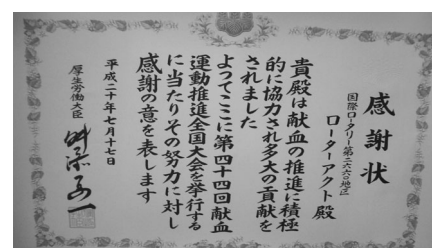 感謝状
国際ロータリー第二六六〇地区
ローターアクト殿
貴殿は献血の推進に積極
的に協力され多大の貢献を
されました
よってここに第四十四回献血
運動推進全国大会を挙行する
に当たりその努力に対し
感謝の意を表します
平成二十年七月十七日
厚生労働大臣
舛添要一